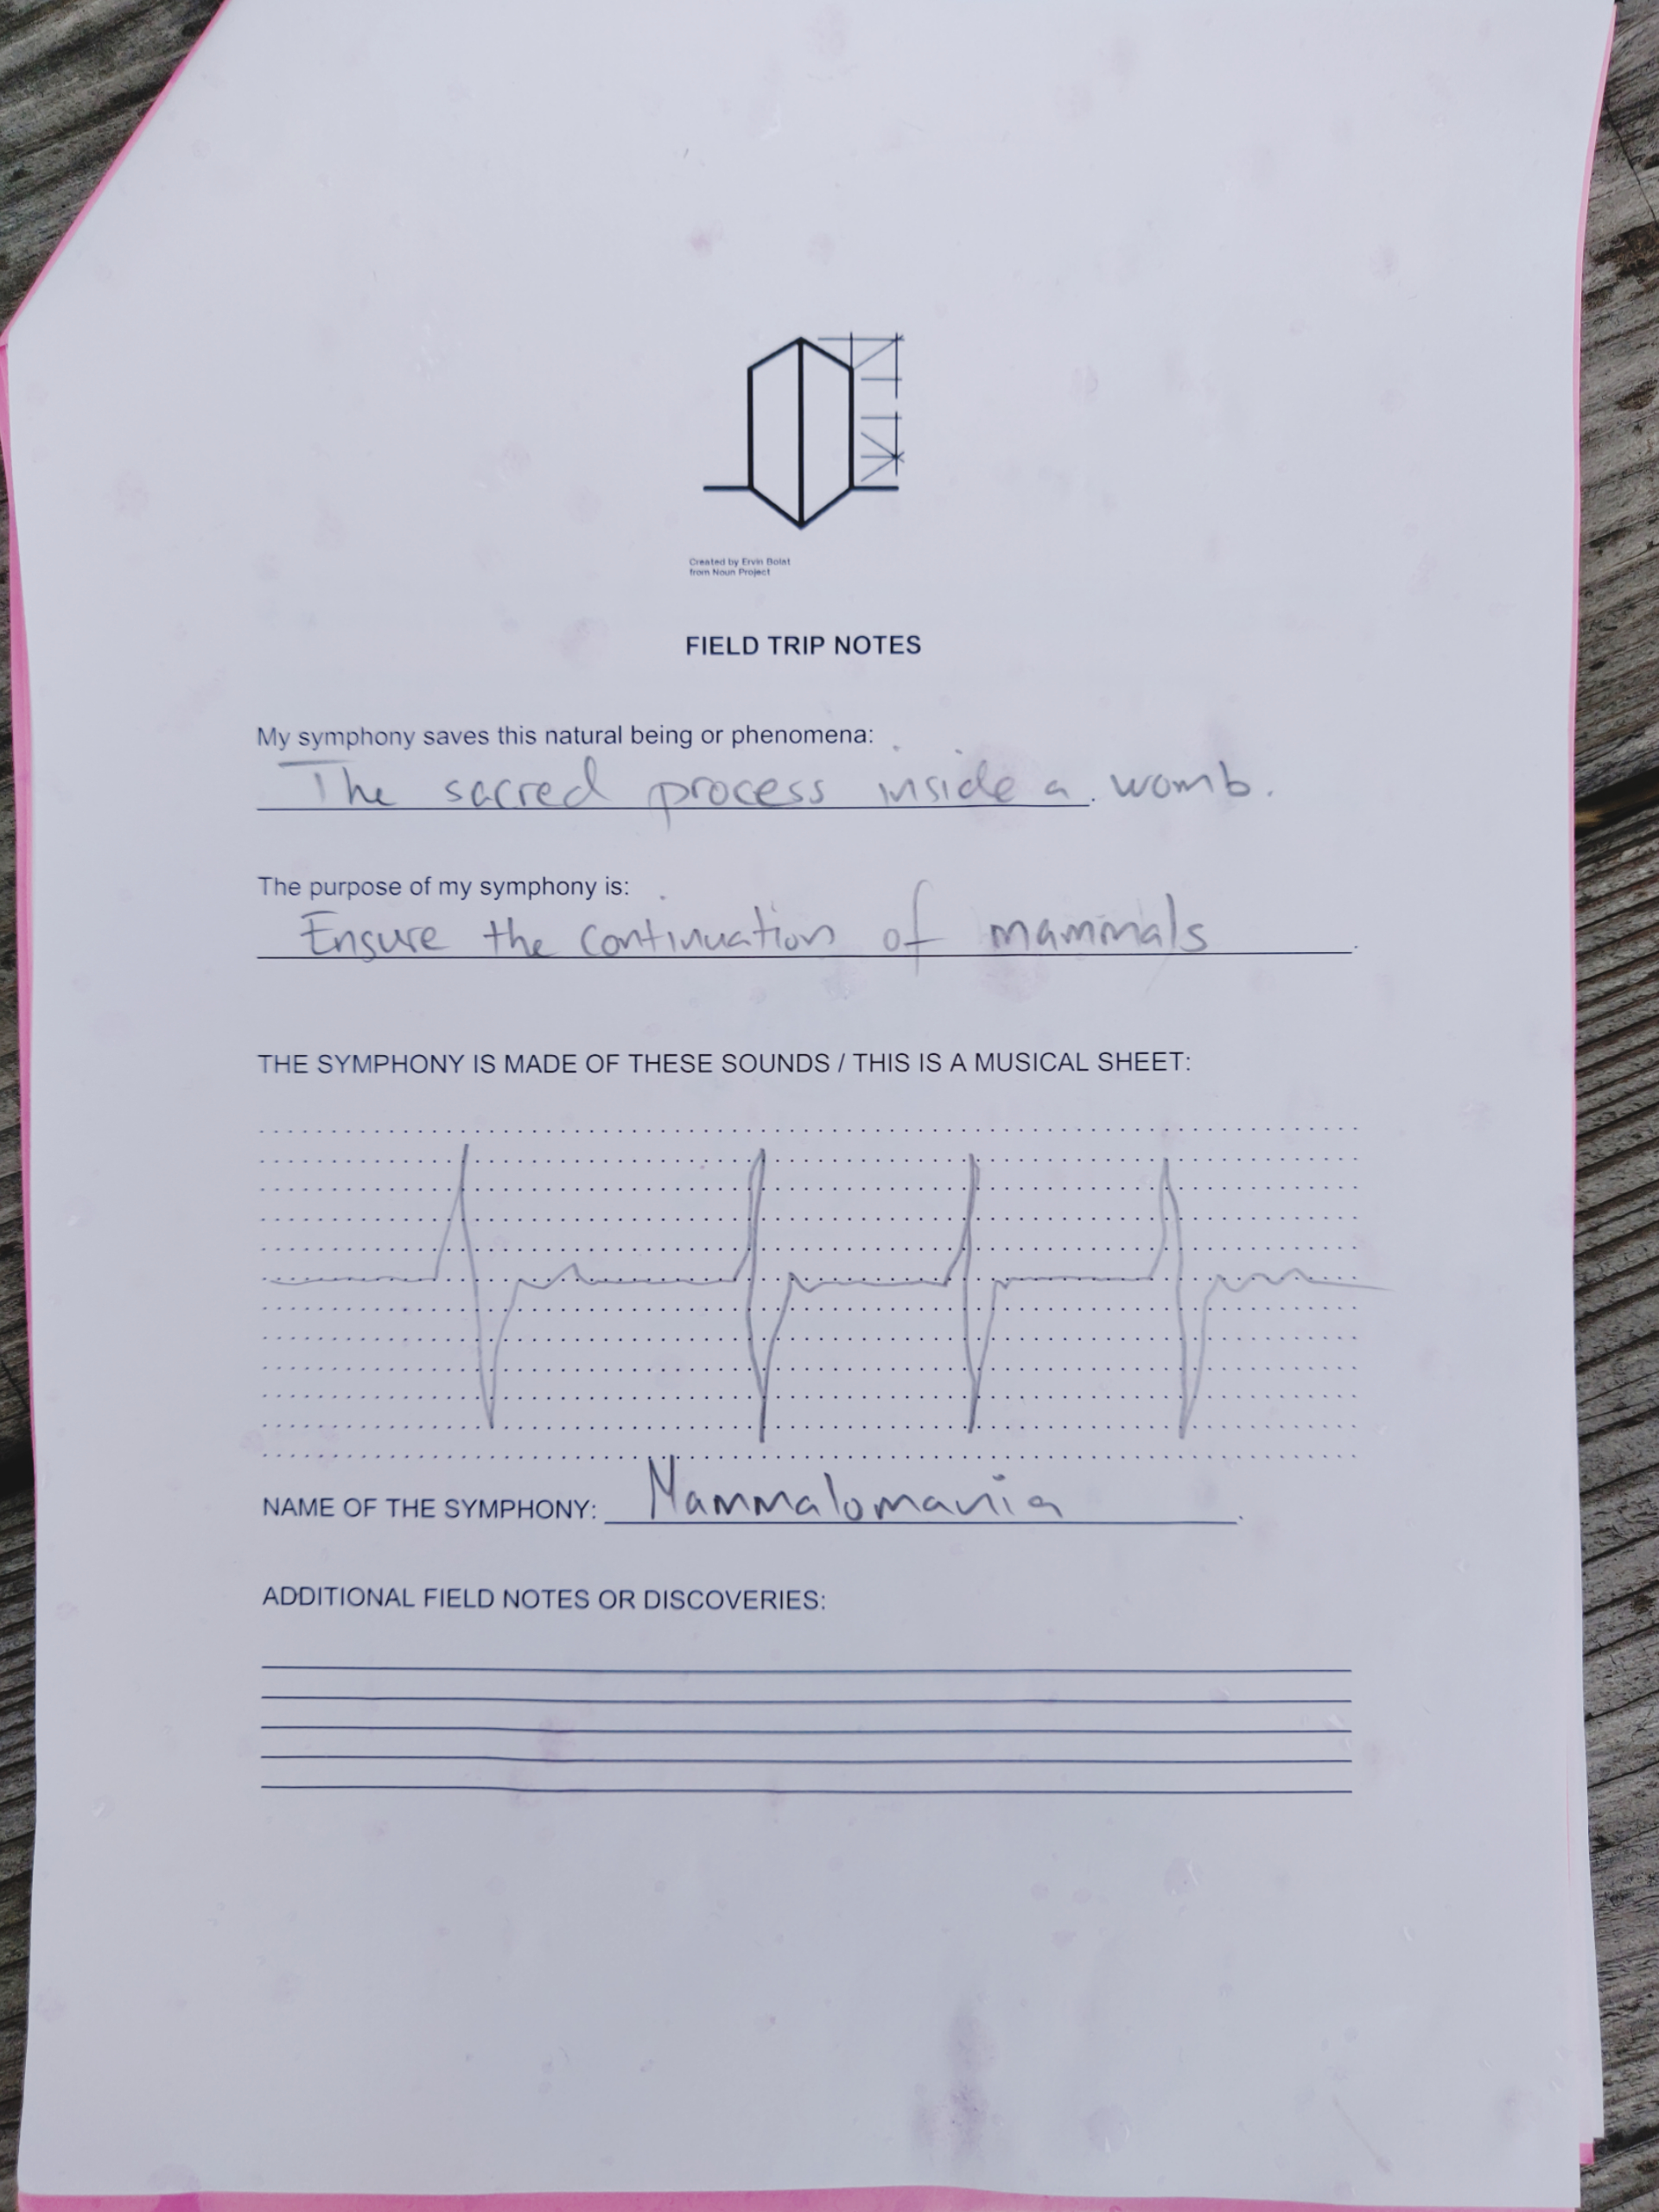 Created by Ervin Bolat
from Noun Project
FIELD TRIP NOTES
My symphony saves this natural being or phenomena:
The sacred process inside a womb.
The purpose of my symphony is:
Ensure the continuation of mammals.
THE SYMPHONY IS MADE OF THESE SOUNDS / THIS IS A MUSICAL SHEET:
NAME OF THE SYMPHONY: Mammalomania.
ADDITIONAL FIELD NOTES OR DISCOVERIES: